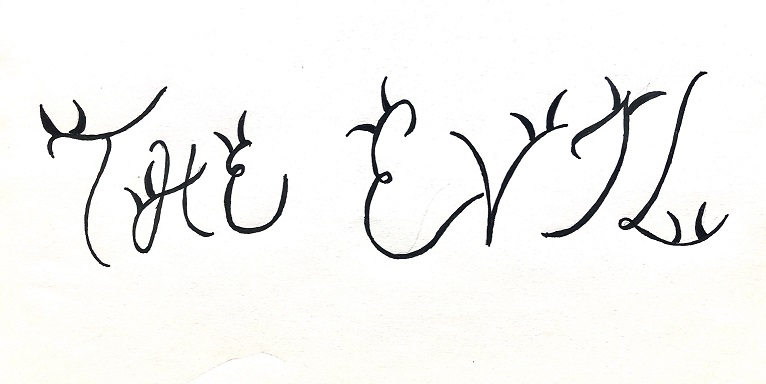 THE EVIL